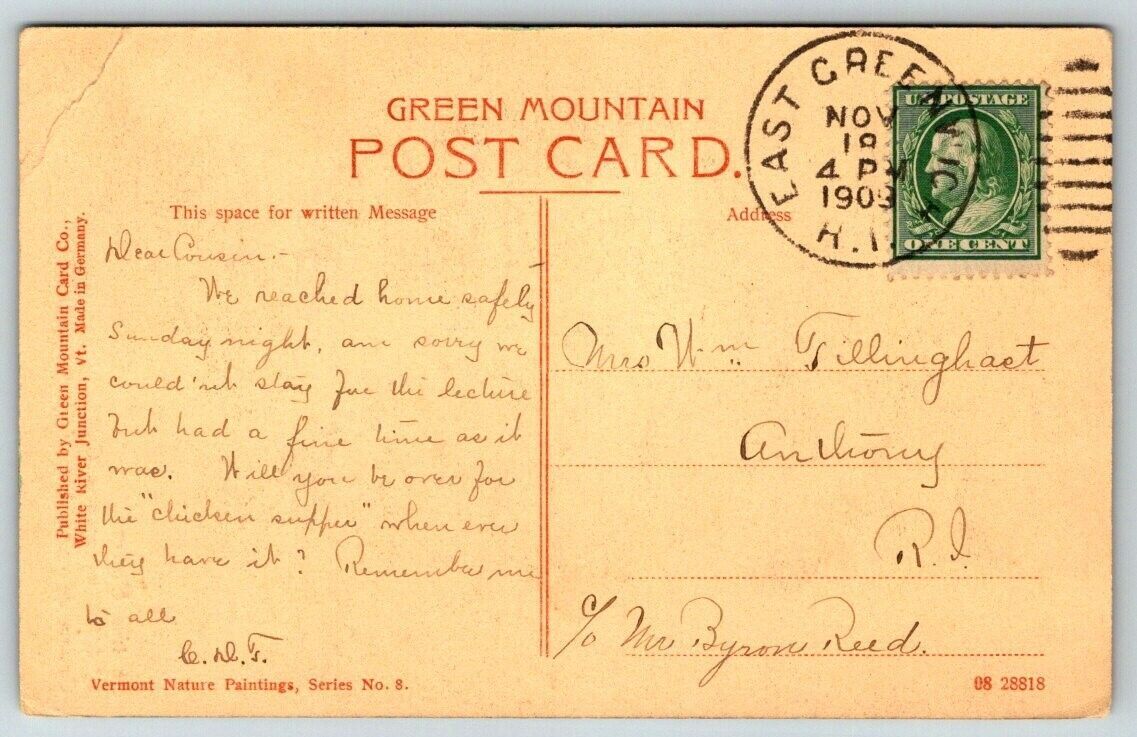 GREEN MOUNTAIN
POST CARD.
This space for written Message
Address
EAST GREENWICH
NOV
18
4 PM
1909
R.I.
U.S. POSTAGE
ONE CENT
Published by Green Mountain Card Co.,
White River Junction, Vt. Made in Germany.
Dear Cousin.-
We reached home safely
Sunday night, am sorry we
could'nt stay for the lecture
but had a fine time as it
was. Will you be over for
the "chicken supper" when ever
they have it? Remember me
to all
C. D. T.
Mrs Wm Tillinghast
Anthony
R.I.
c/o Mr Byron Reed.
Vermont Nature Paintings, Series No. 8.
08 28818